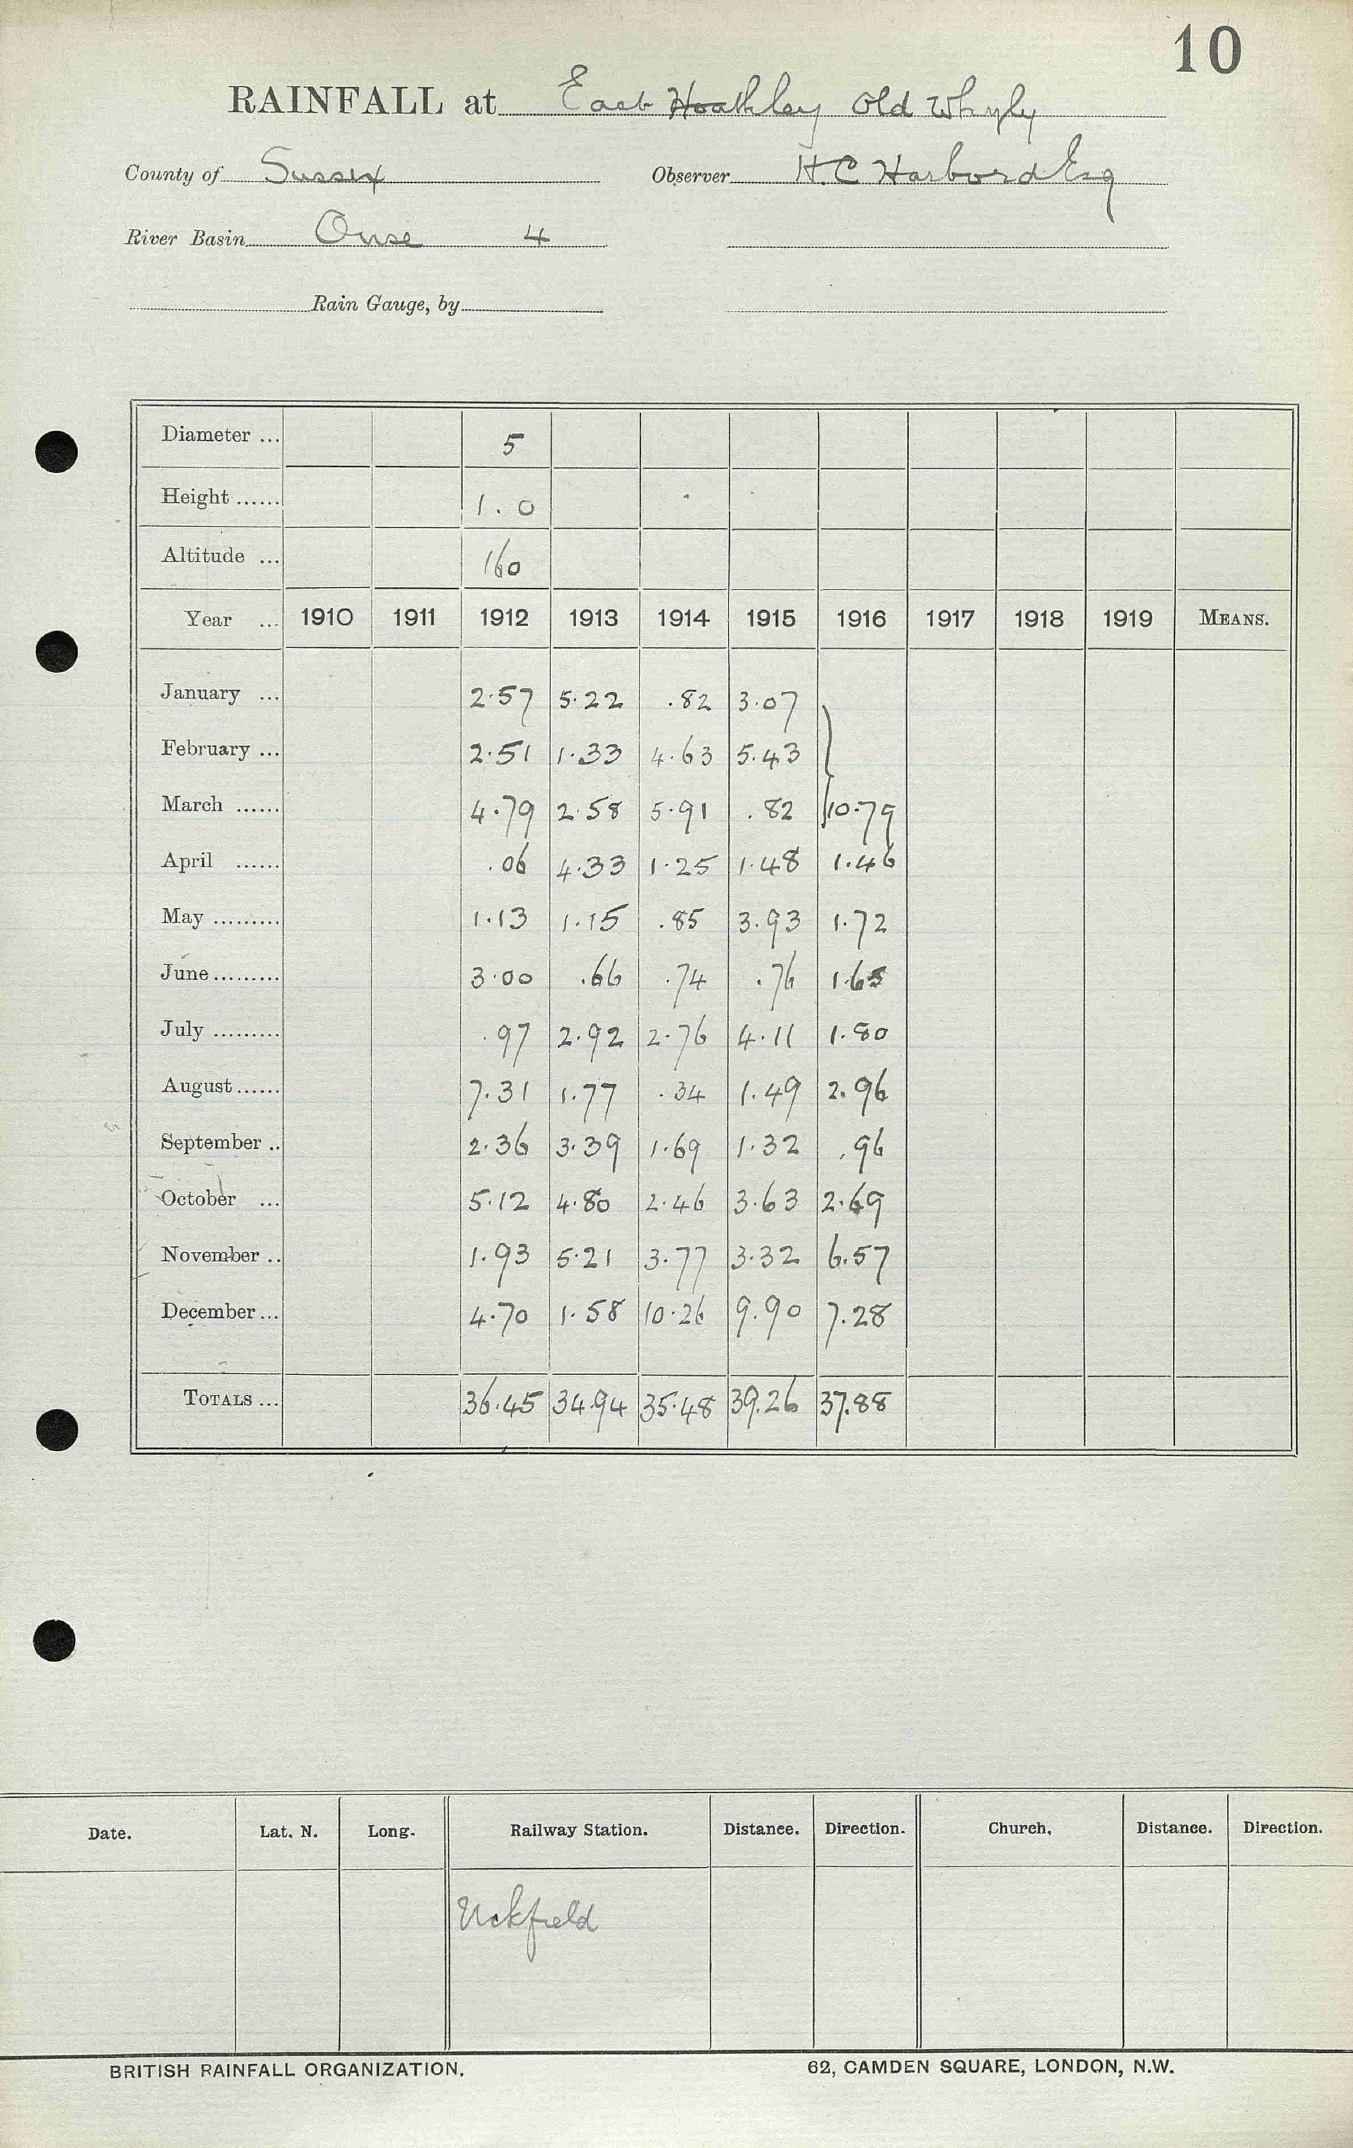 10
RAINFALL at East Hoathley Old Whyly
County of Sussex Observer H.C Harbord Esq
River Basin Ouse 4
Rain Gauge, by
Diameter ... 5
Height ...... 1.0
Altitude ... 160
Year ... 1910 1911 1912 1913 1914 1915 1916 1917 1918 1919 MEANS.
January ... 2.57 5.22 .82 3.07
February ... 2.51 1.33 4.63 5.43
March ...... 4.79 2.58 5.91 .82 10.79
April ...... .06 4.33 1.25 1.48 1.46
May ......... 1.13 1.15 .85 3.93 1.72
June ......... 3.00 .66 .74 .76 1.65
July ......... .97 2.92 2.76 4.11 1.80
August ...... 7.31 1.77 .34 1.49 2.96
September .. 2.36 3.39 1.69 1.32 .96
October ... 5.12 4.80 2.46 3.63 2.69
November .. 1.93 5.21 3.77 3.32 6.57
December ... 4.70 1.58 10.26 9.90 7.28
TOTALS ... 36.45 34.94 35.48 39.26 37.88
Date. Lat. N. Long. Railway Station. Distance. Direction. Church. Distance. Direction.
Uckfield
BRITISH RAINFALL ORGANIZATION. 62, CAMDEN SQUARE, LONDON, N.W.